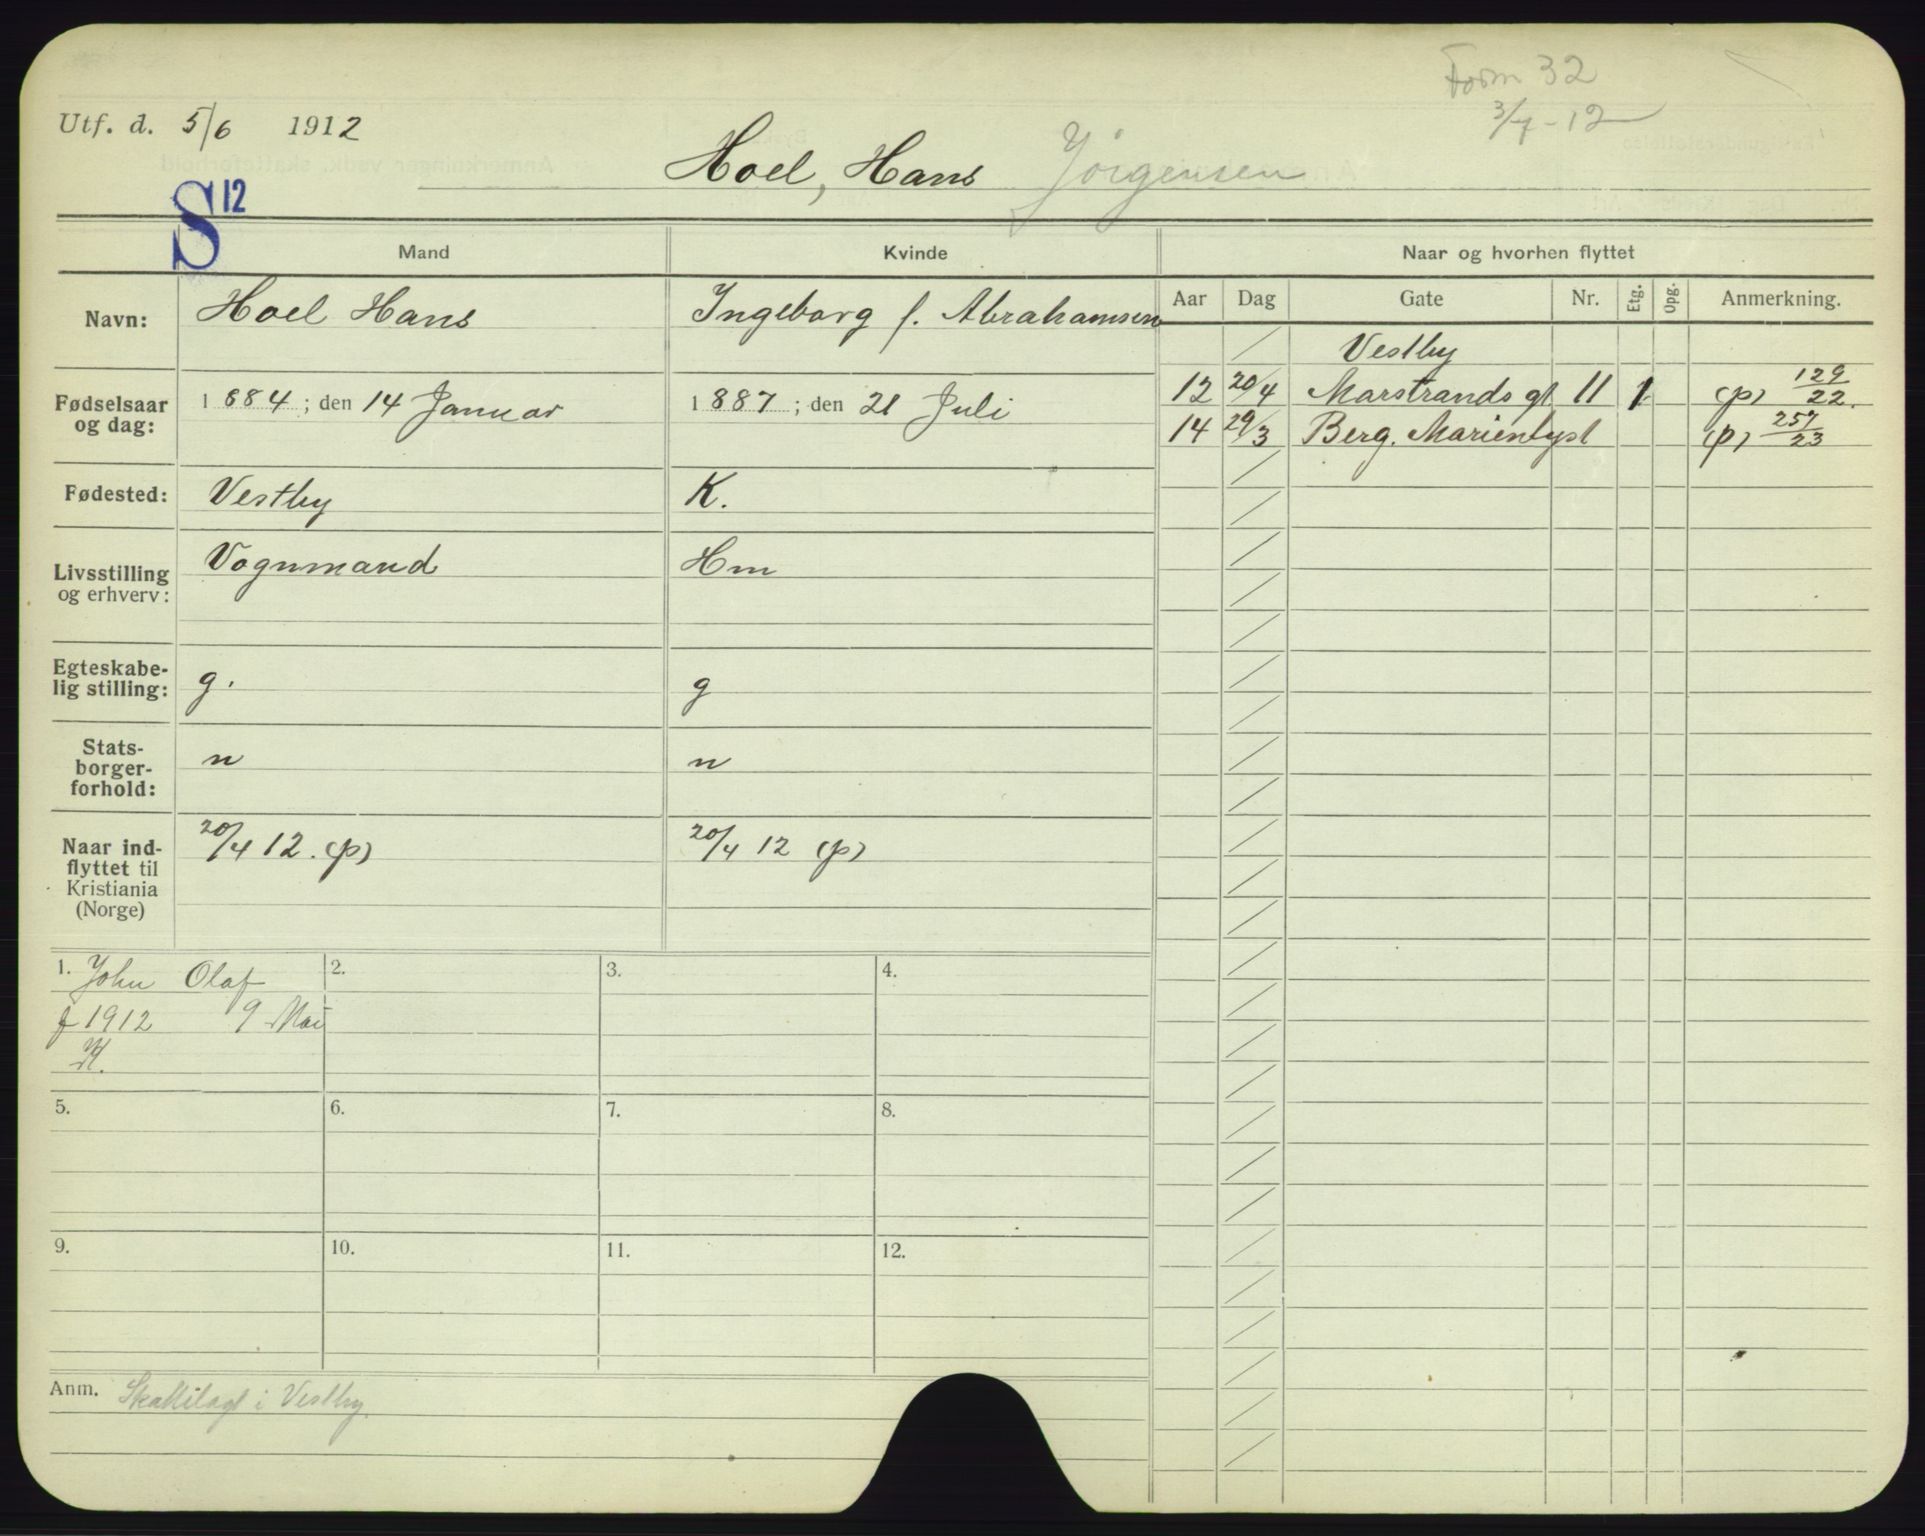 Form 32
3/7-12
Utf. d. 5/6 1912
Hoel, Hans Jörgensen
S 12
Mand Kvinde Naar og hvorhen flyttet
Navn: Hoel Hans Ingeborg f. Abrahamsen
Aar Dag Gate Nr. Etg. Opg. Anmerkning.
Vestby
12 20/4 Marstrands gt 11 1 (p) 129/22.
14 29/3 Berg. Marienlyst (p) 257/23
Fødselsaar og dag: 1884; den 14 Januar 1887; den 21 Juli
Fødested: Vestby K.
Livsstilling og erhverv: Vognmand Hm
Egteskabe-
lig stilling: g. g
Stats-
borger-
forhold: n n
Naar ind-
flyttet til
Kristiania
(Norge) 20/4 12. (p) 20/4 12 (p)
1. John Olaf 2. 3. 4.
f 1912 9 Mai
K.
5. 6. 7. 8.
9. 10. 11. 12.
Anm. Skattilagt i Vestby.